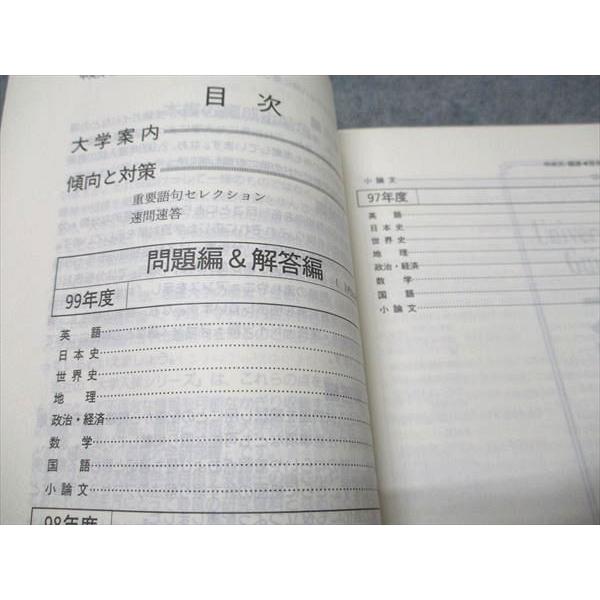 目次
大学案内
傾向と対策
重要語句セレクション
速問速答
問題編&解答編
99年度
英語
日本史
世界史
地理
政治・経済
数学
国語
小論文
98年度
小論文
97年度
英語
日本史
世界史
地理
政治・経済
数学
国語
小論文